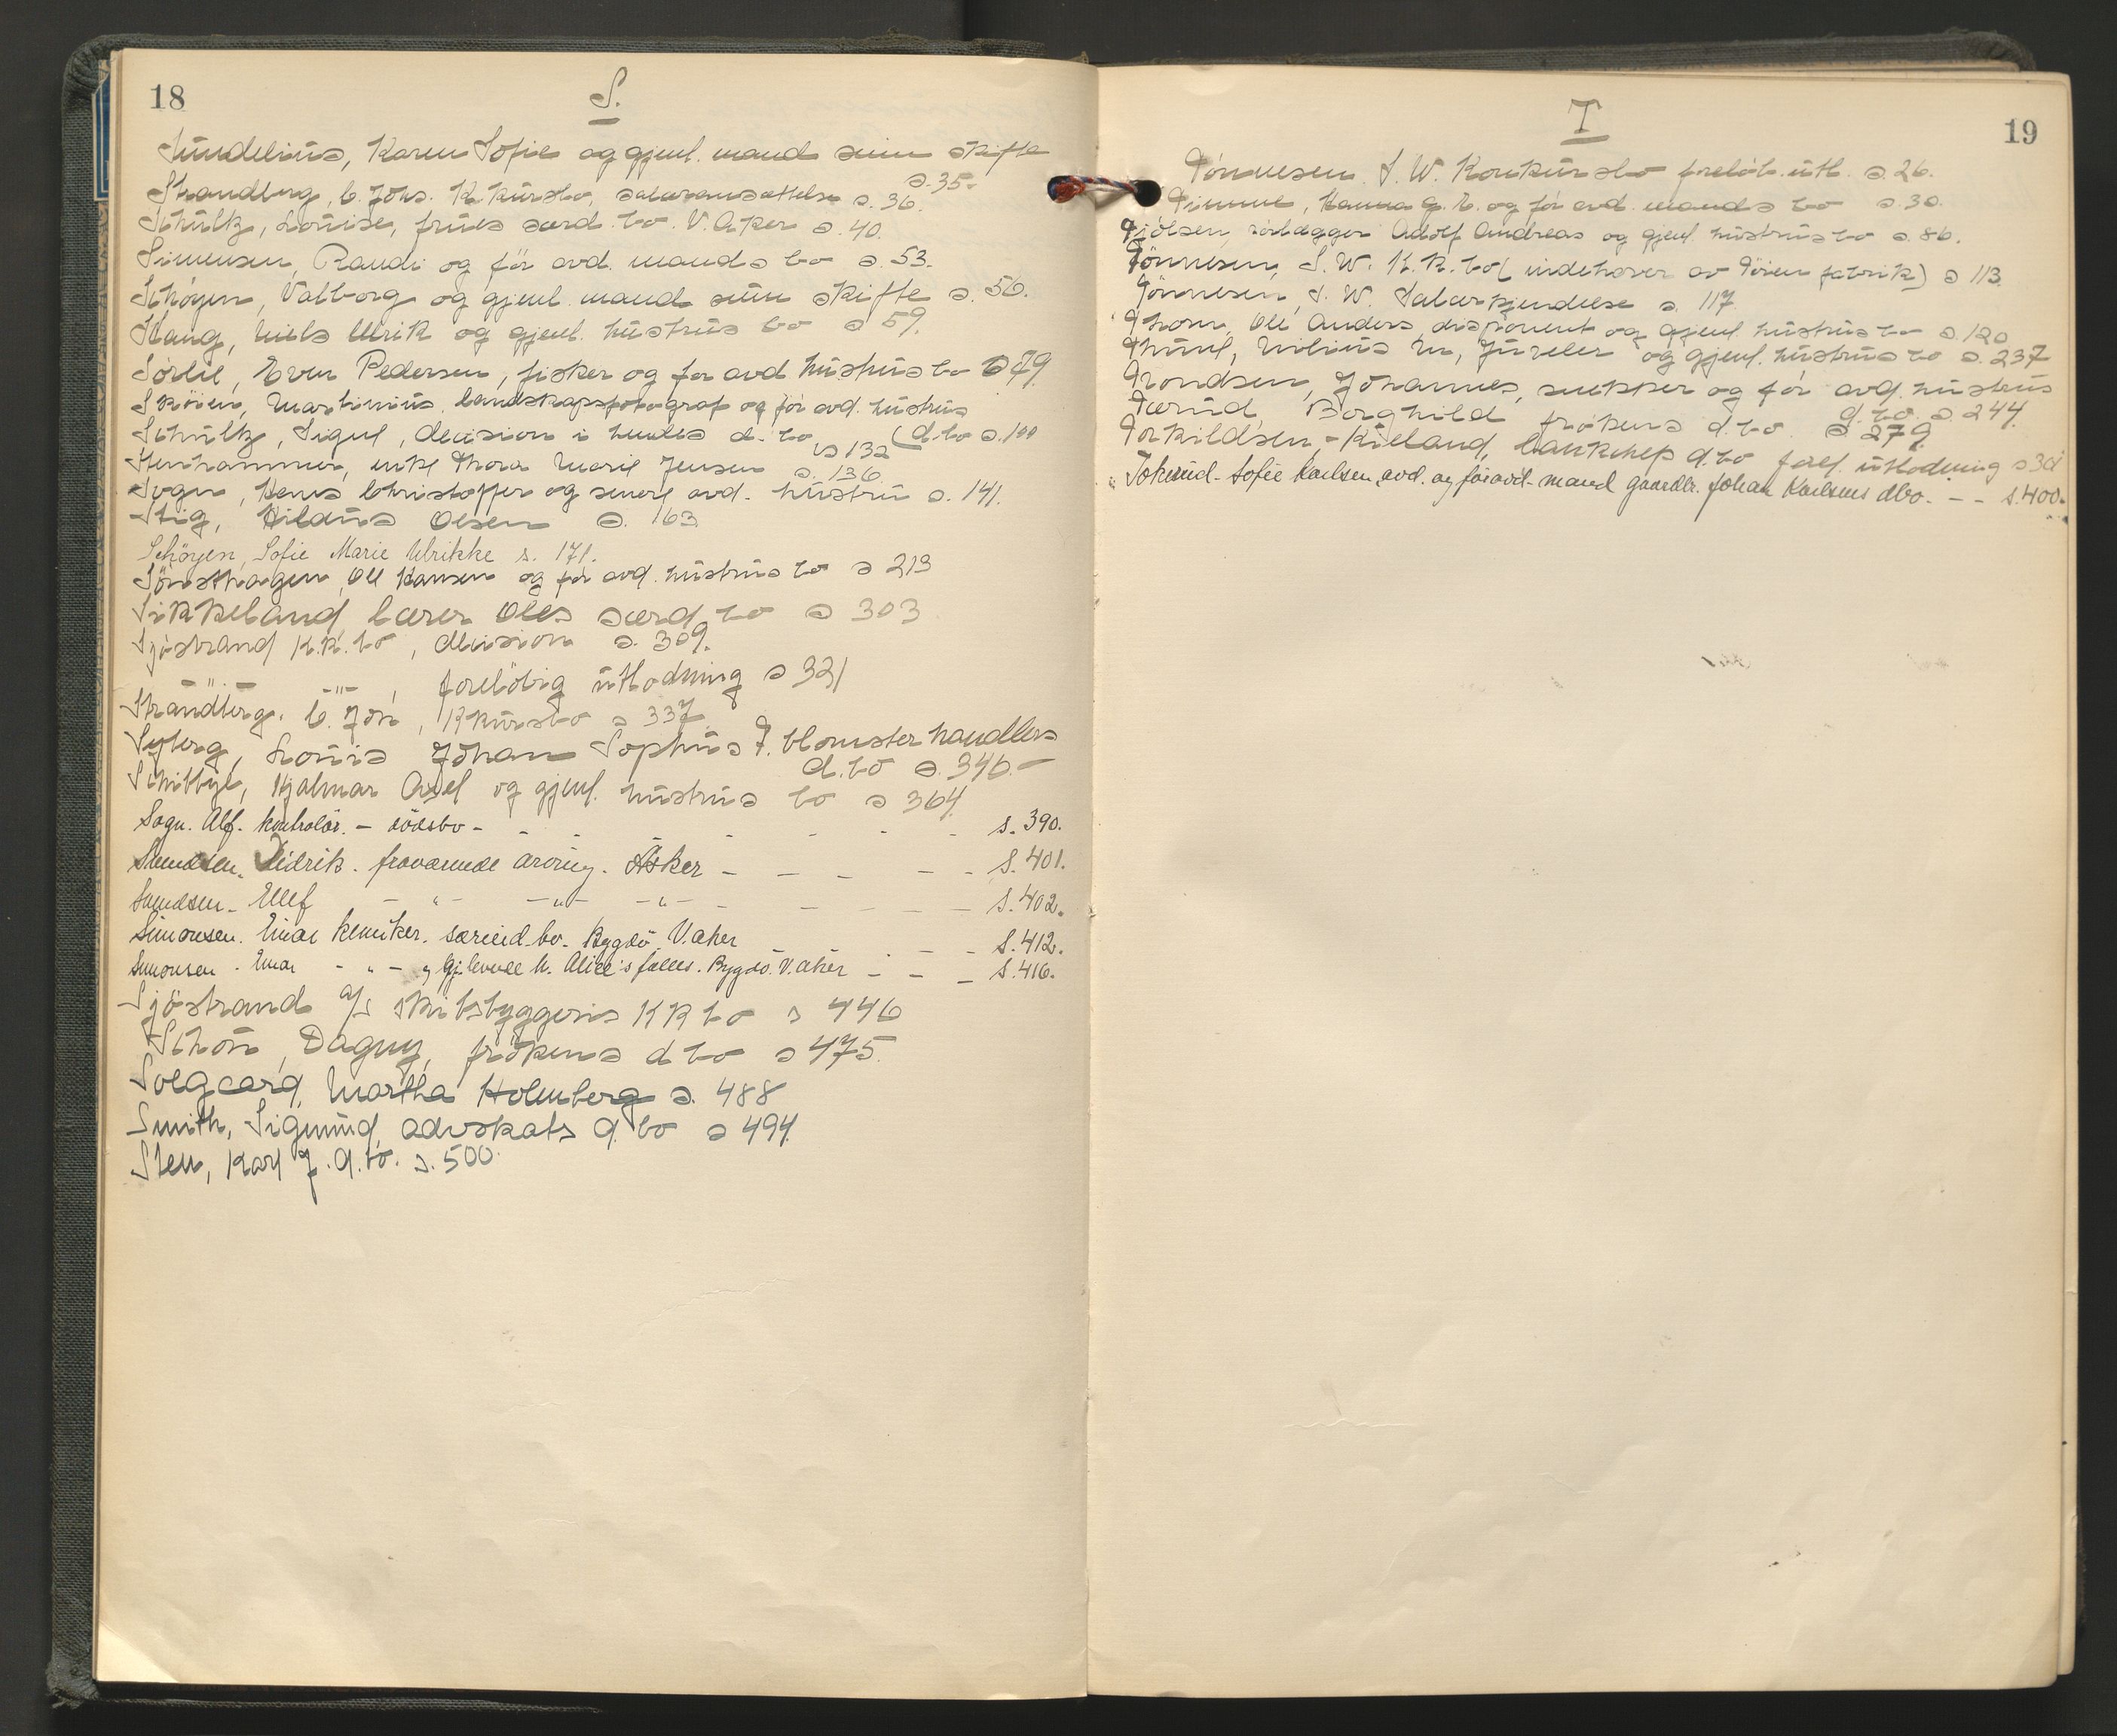 18
S.
Sundelius, Karen Sofie og gjenl. mand sum skifte
s. 35-
Strandberg, C. Jons. K.kursbo, salæransættelse s. 36.
Schultz, Louise, frues særd. bo. V. Aker s. 40.
Simensen, Randi og för avd. mands bo s. 53.
Schøyen, Valborg og gjenl. mand sum skifte s. 56.
Stang, Niels Ulrik og gjenl. hustrus bo s 59.
Sørlie, Even Pedersen, fisker og før avd hustrus bo s 79
Skøien, Martinius landskapsfotograf og før avd. hustrus
(d. bo s. 100
Schultz, Sigul, decision i hendes d. bo s 132
Stenhammer, enke Thora Marie Jensen s. 136
Sogn, Hans Christoffer og senere avd. hustru s. 141.
Stig, Hildus Olsen s. 163
Schøyen, Sofie Marie Ulrikke s. 171.
Sönsthagen, Ole Hansen og før avd. hustrus bo s 213
Sikkeland, lærer Oles særd bo s 303
Sjöstrand K.K. bo, decision s. 309.
-"- -"-, foreløbig utlodning s 321
Strandberg, C. Jon, Kkursbo s 337
Syberg, Louis Johan Sophus F. blomsterhandlers
d. bo s. 346.-
Schibbye, Hjalmar Axel og gjenl. hustrus bo s 364
Sogn. Alf. kontrolör. - dödsbo - - - - - - - s. 390.
Svendsen. Didrik. fraværende arving. Asker - - - - - s. 401.
Svendsen - Ellef -"- -"- -"- - - - - s. 402.
Simonsen. Einar kemiker. særeied. bo. Bygdö V. Aker - - - s. 412.
Simonsen. Einar -"- og gjlevende h. Alice's fælles. Bygdö. V. Aker - - - s. 416.
Sjöstrand A/S skibsbyggeris KK bo s 446
Schön, Dagny, frøkens d bo s 475.
Solgaard, Martha Holmberg s. 488
Smith, Sigmund, advokats d. bo s 494.
Sten, Karl J. d. bo. s. 500.
19
T
Tönnesen. S. W. Konkursbo foreløb. utl. s. 26.
Timme, Hanna G. E. og før avd. mands bo s. 30.
Tjölsen, rörlægger Adolf Andreas og gjenl. hustrus bo s. 86.
Tönnesen, S. W. K.K. bo (indehaver av Töien fabrik) s 113.
Tönnesen, S. W. Salærkjendelse s. 117
Thom, Ole Anders, disponent og gjenl. hustrus bo s. 120
Thune, Nilius M, Juveler og gjenl. hustrus bo s. 237
Trondsen, Johannes, snekker og før avd. hustrus
d. bo. s 244.
Tærud, Borghild frøkens d. bo. s 279.
Torkildsen-Kieland, bankchef d. bo forel. utlodning s 3
Tokerud - Sofie Karlsen, avd. og föravd- mand gaardbr. Johan Karlsens dbo. - - s. 400.